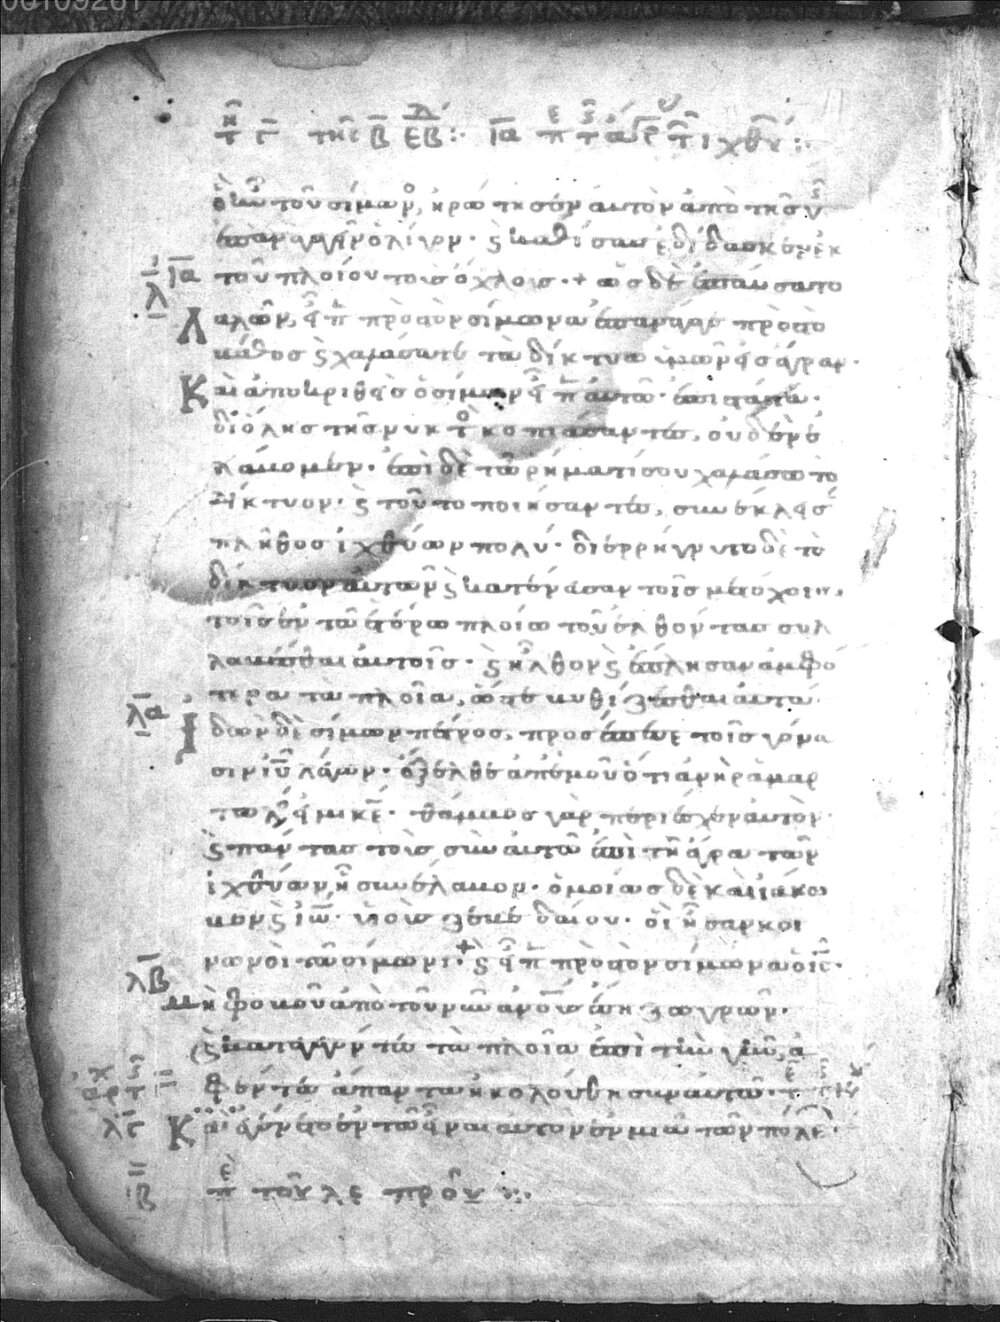 ὃ ἦν τοῦ σίμωνος, ἠρώτησεν αὐτὸν ἀπὸ τῆς γῆς
ἐπαναγαγεῖν ὀλίγον· ϗ καθίσας ἐδίδασκεν ἐκ
ῑᾱ τοῦ πλοίου τοὺς ὄχλους· + ὡς δὲ ἐπαύσατο
λαλῶν, εἶπε πρὸς τὸν σίμωνα ἐπανάγαγε πρὸς τὸ
βάθος ϗ χαλάσατε τὰ δίκτυα ὑμῶν εἰς ἄγραν·
Καὶ ἀποκριθεὶς ὁ σίμων εἶπεν αὐτῶ· ἐπιστάτα·
δι ὅλης τῆς νυκτὸς κοπιάσαντες, οὐδὲν ἐ
λάβομεν· ἐπὶ δὲ τῶ ρήματί σου χαλάσω τὸ
δίκτυον· ϗ τοῦτο ποιήσαντες, συνέκλεισαν
πλῆθος ἰχθύων πολύ· διερρήγνυτο δὲ τὸ
δίκτυον αὐτῶν ϗ κατένευσαν τοῖς μετόχοις,
τοῖς ἐν τῶ ἑτέρω πλοίω τοῦ ἐλθόντας συλ
λαβέσθαι αὐτοῖς· ϗ ἦλθον ϗ ἔπλησαν ἀμφό
τερα τὰ πλοῖα, ὥστε βυθίζεσθαι αὐτά·
λ̄ᾱ ἰδὼν δὲ σίμων πέτρος, προσέπεσε τοῖς γόνα
σιν ῑῡ λέγων· ἔξελθε ἀπ ἐμοῦ ὅτι ἀνὴρ ἁμαρ
τωλός εἰμι κ̄ε̄· θάμβος γὰρ περιέσχεν αὐτὸν·
ϗ πάντας τοὺς σὺν αὐτῶ ἐπὶ τῆ ἄγρα τῶν
ἰχθύων ἧ συνέλαβον· ὁμοίως δὲ καὶ ἰάκω
βον ϗ ἰω̄· υἱοὺς ζεβεδαίου· οἳ ἦσαν κοι
νωνοὶ τῶ σίμωνι· + ϗ εἶπε πρὸς τὸν σίμωνα ὁ ι̅ς̅·
λ̄β̄ μὴ φοβοῦ ἀπὸ τοῦ νῦν ἀν̅ο̅υ̅ς ἔση ζωγρῶν·
ϗ καταγαγόντες τὰ πλοῖα ἐπὶ τὴν γῆν, ἀ
φέντες ἅπαντα ἠκολούθησαν αὐτῶ·
λ̄γ̄ Καὶ ἐγένετο ἐν τῶ εἶναι αὐτὸν ἐν μιᾶ τῶν πόλε·